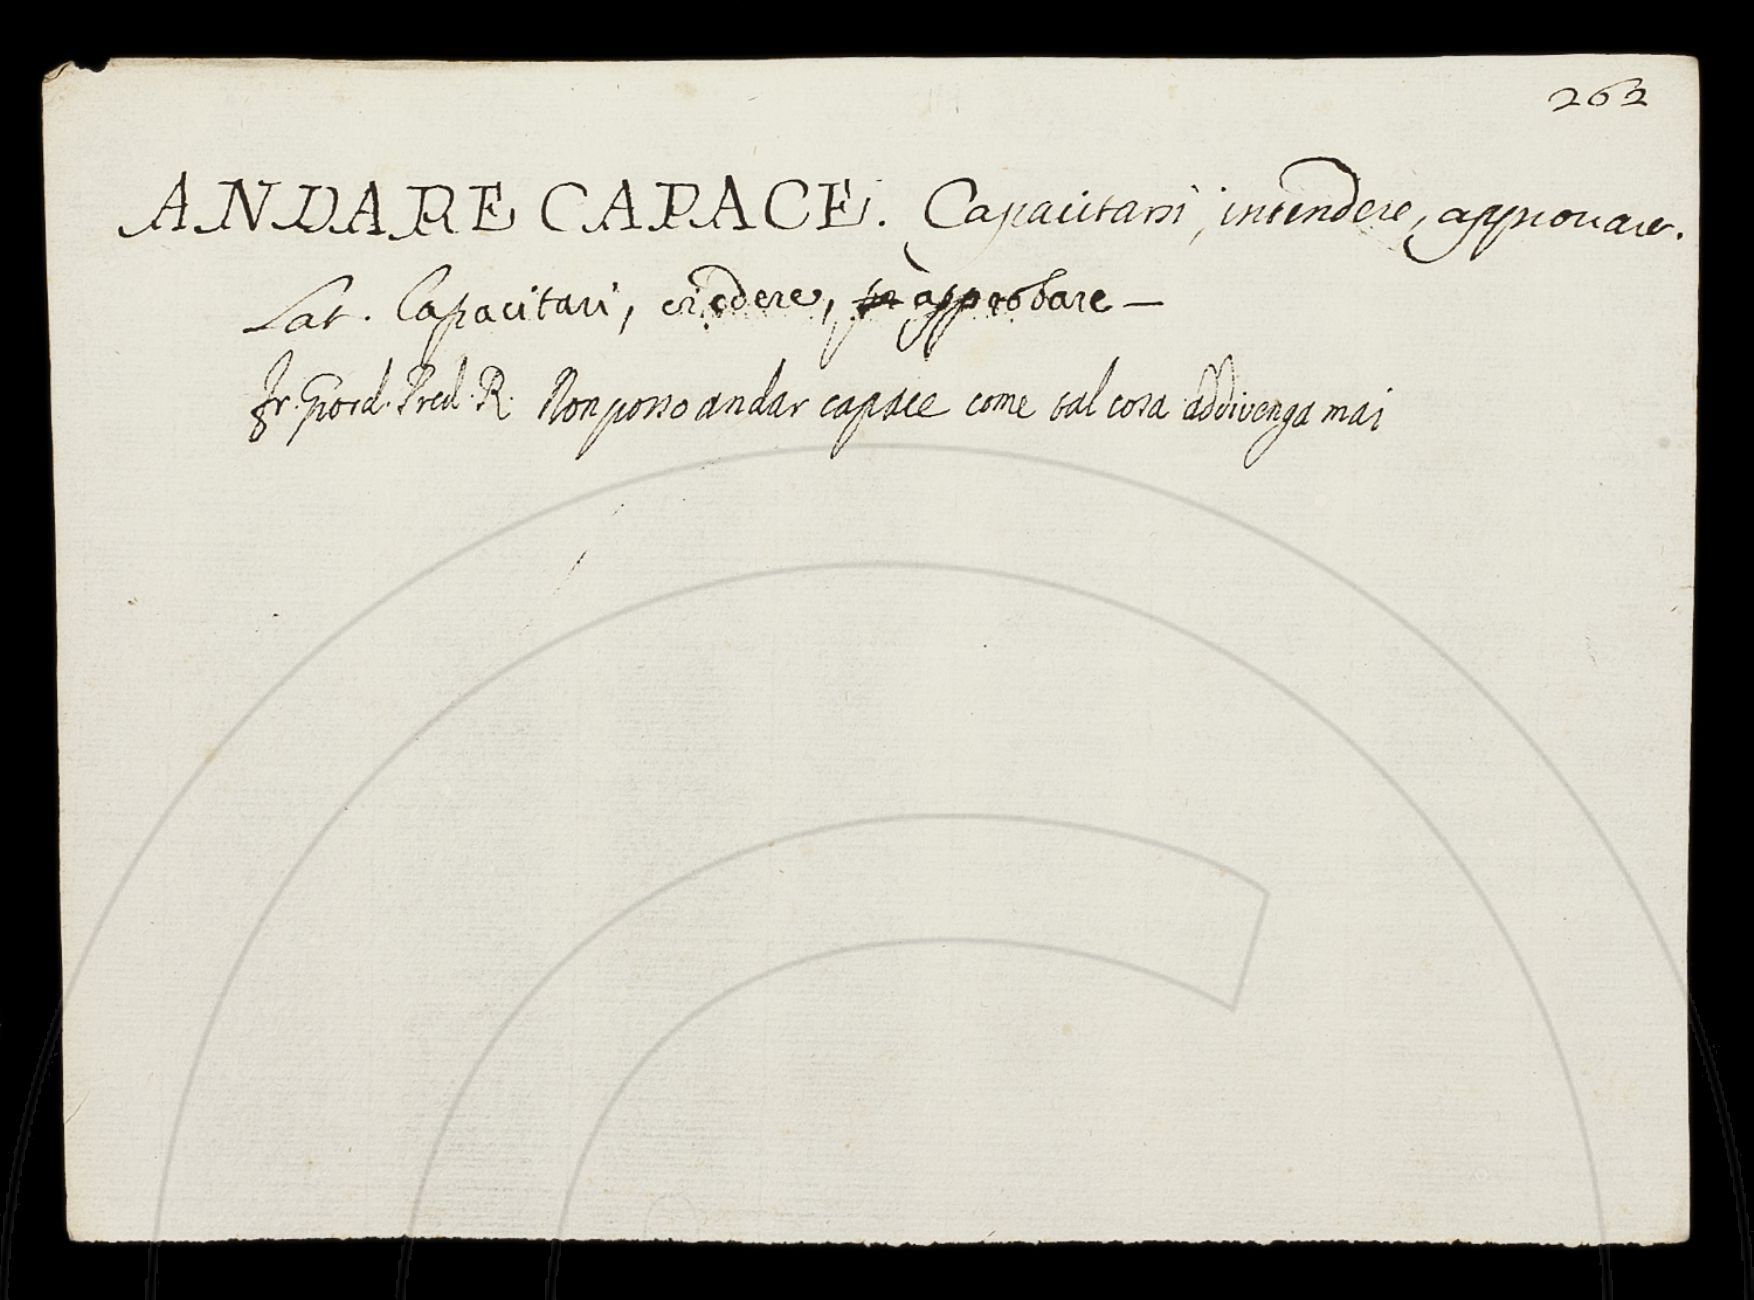 262
ANDARE CAPACE. Capacitarsi, intendere, approuare.
Lat. Capacitari, credere, approbare —
Fr. Giord. Pred. R. Non posso andar capace come tal cosa addivenga mai